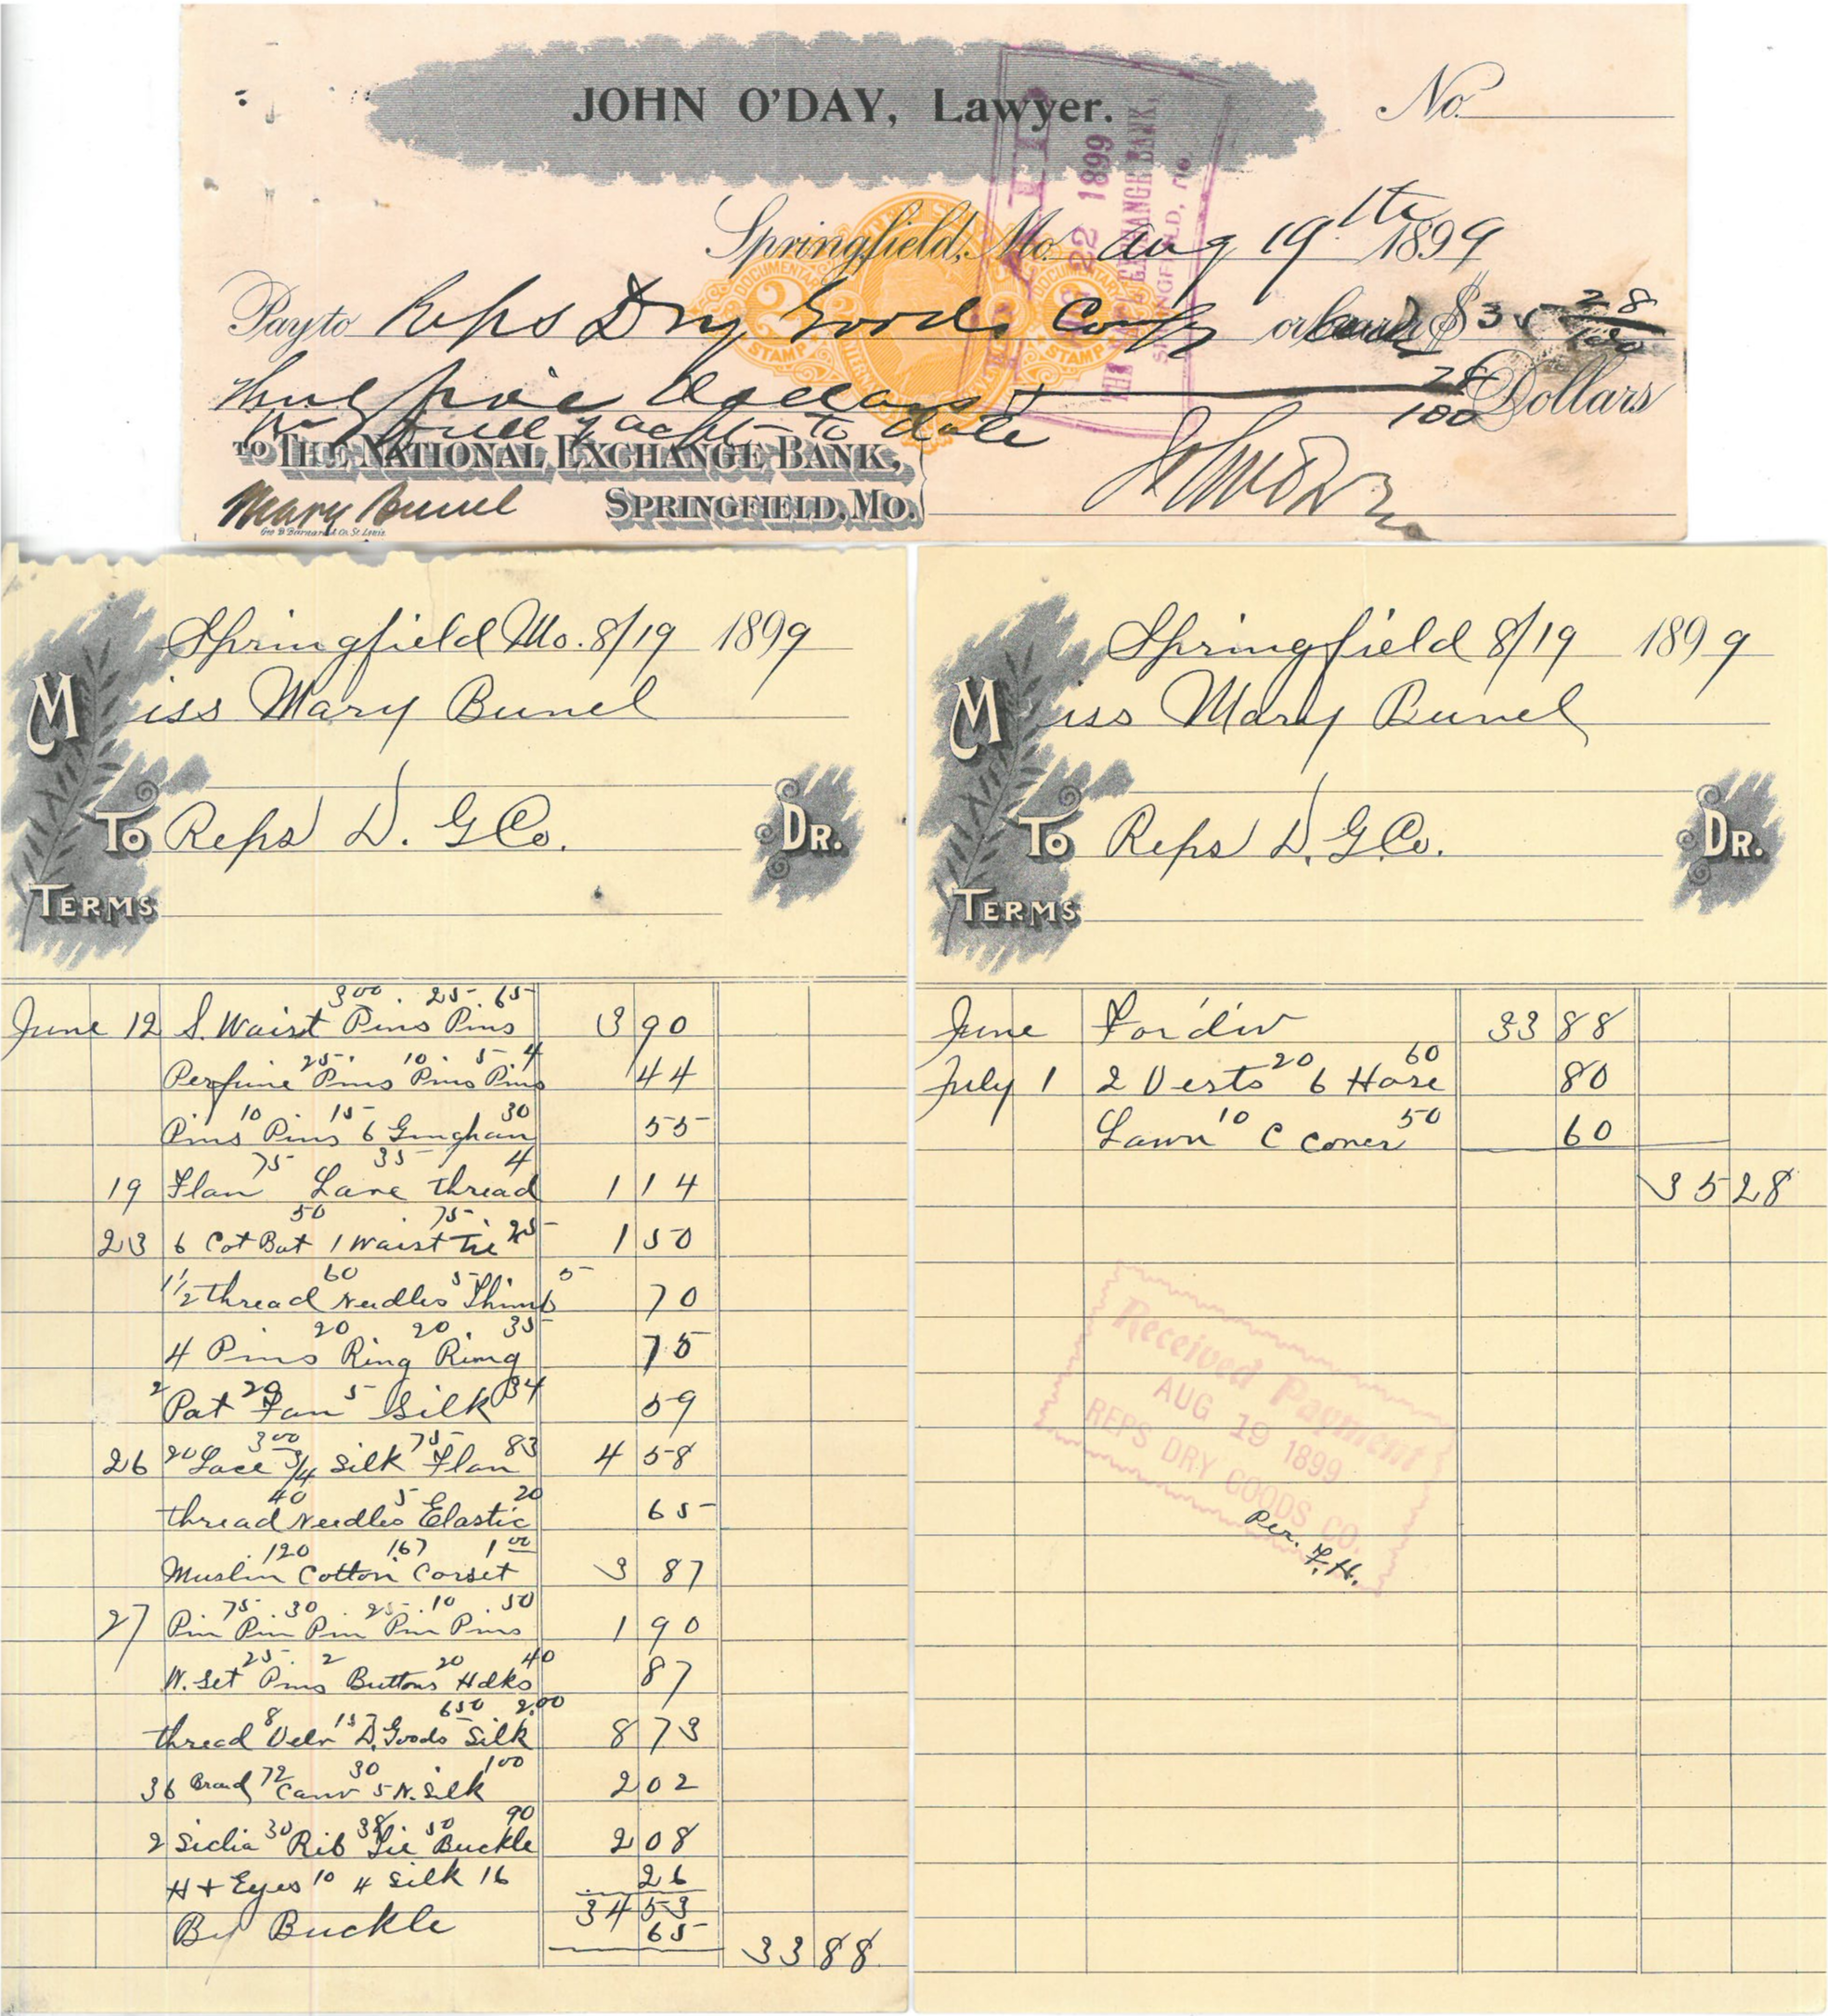 JOHN O'DAY, Lawyer.
No.
Springfield, Mo. Aug 19th 1899
Pay to Reps Dry Goods Compy or bearer $35 28/100
Thirty five Dollars + 28/100 Dollars
In full of acct to date
TO THE NATIONAL EXCHANGE BANK,
SPRINGFIELD, MO.
Mary Bunel
Geo D Barnard & Co. St. Louis
John O'Day
PAID
AUG 22 1899
THE NAT'L EXCHANGE BANK,
SPRINGFIELD, MO.
DOCUMENTARY
2
STAMP
DOCUMENTARY
2
STAMP
Springfield Mo. 8/19 1899
Miss Mary Bunel
To Reps D. G Co. Dr.
Terms
300 . 25 . 65
June 12 S. Waist Pins Pins 3 90
25 . 10 . 5 4
Perfume Pins Pins Pins 44
10 15 30
Pins Pins 6 Gingham 55
75 35 4
19 Flan Lace thread 1 14
50 75 25
23 6 Cot Bat 1 Waist Tie 1 50
60 5 5
1 1/2 thread Needles Thimb 70
20 20 . 35
4 Pins Ring Ring 75
2 20 5 34
Pat Fan Silk 59
20 300 75 83
26 Lace 3/4 Silk Flan 4 58
40 5 20
thread Needles Elastic 65
120 167 1 00
Muslin Cotton Corset 3 87
75 . 30 . 25 . 10 . 50
27 Pin Pin Pin Pin Pins 1 90
25 . 2 20 40
W. Set Pins Buttons Hdks 87
8 15 650 2.00
thread Velv D. Goods Silk 8 73
72 30 100
36 Braid Canv 5 N. Silk 2 02
30 38 50 90
2 Silicia Rib Tie Buckle 2 08
H + Eyes 10 4 Silk 16 26
34 53
By Buckle 65
33 88
Springfield 8/19 1899
Miss Mary Bunel
To Reps D. G. Co. Dr.
Terms
June For'd 33 88
20 60
July 1 2 Vests 6 Hose 80
10 50
Lawn C Cover 60
35 28
Received Payment
AUG 19 1899
REPS DRY GOODS CO.
Per. F.H.